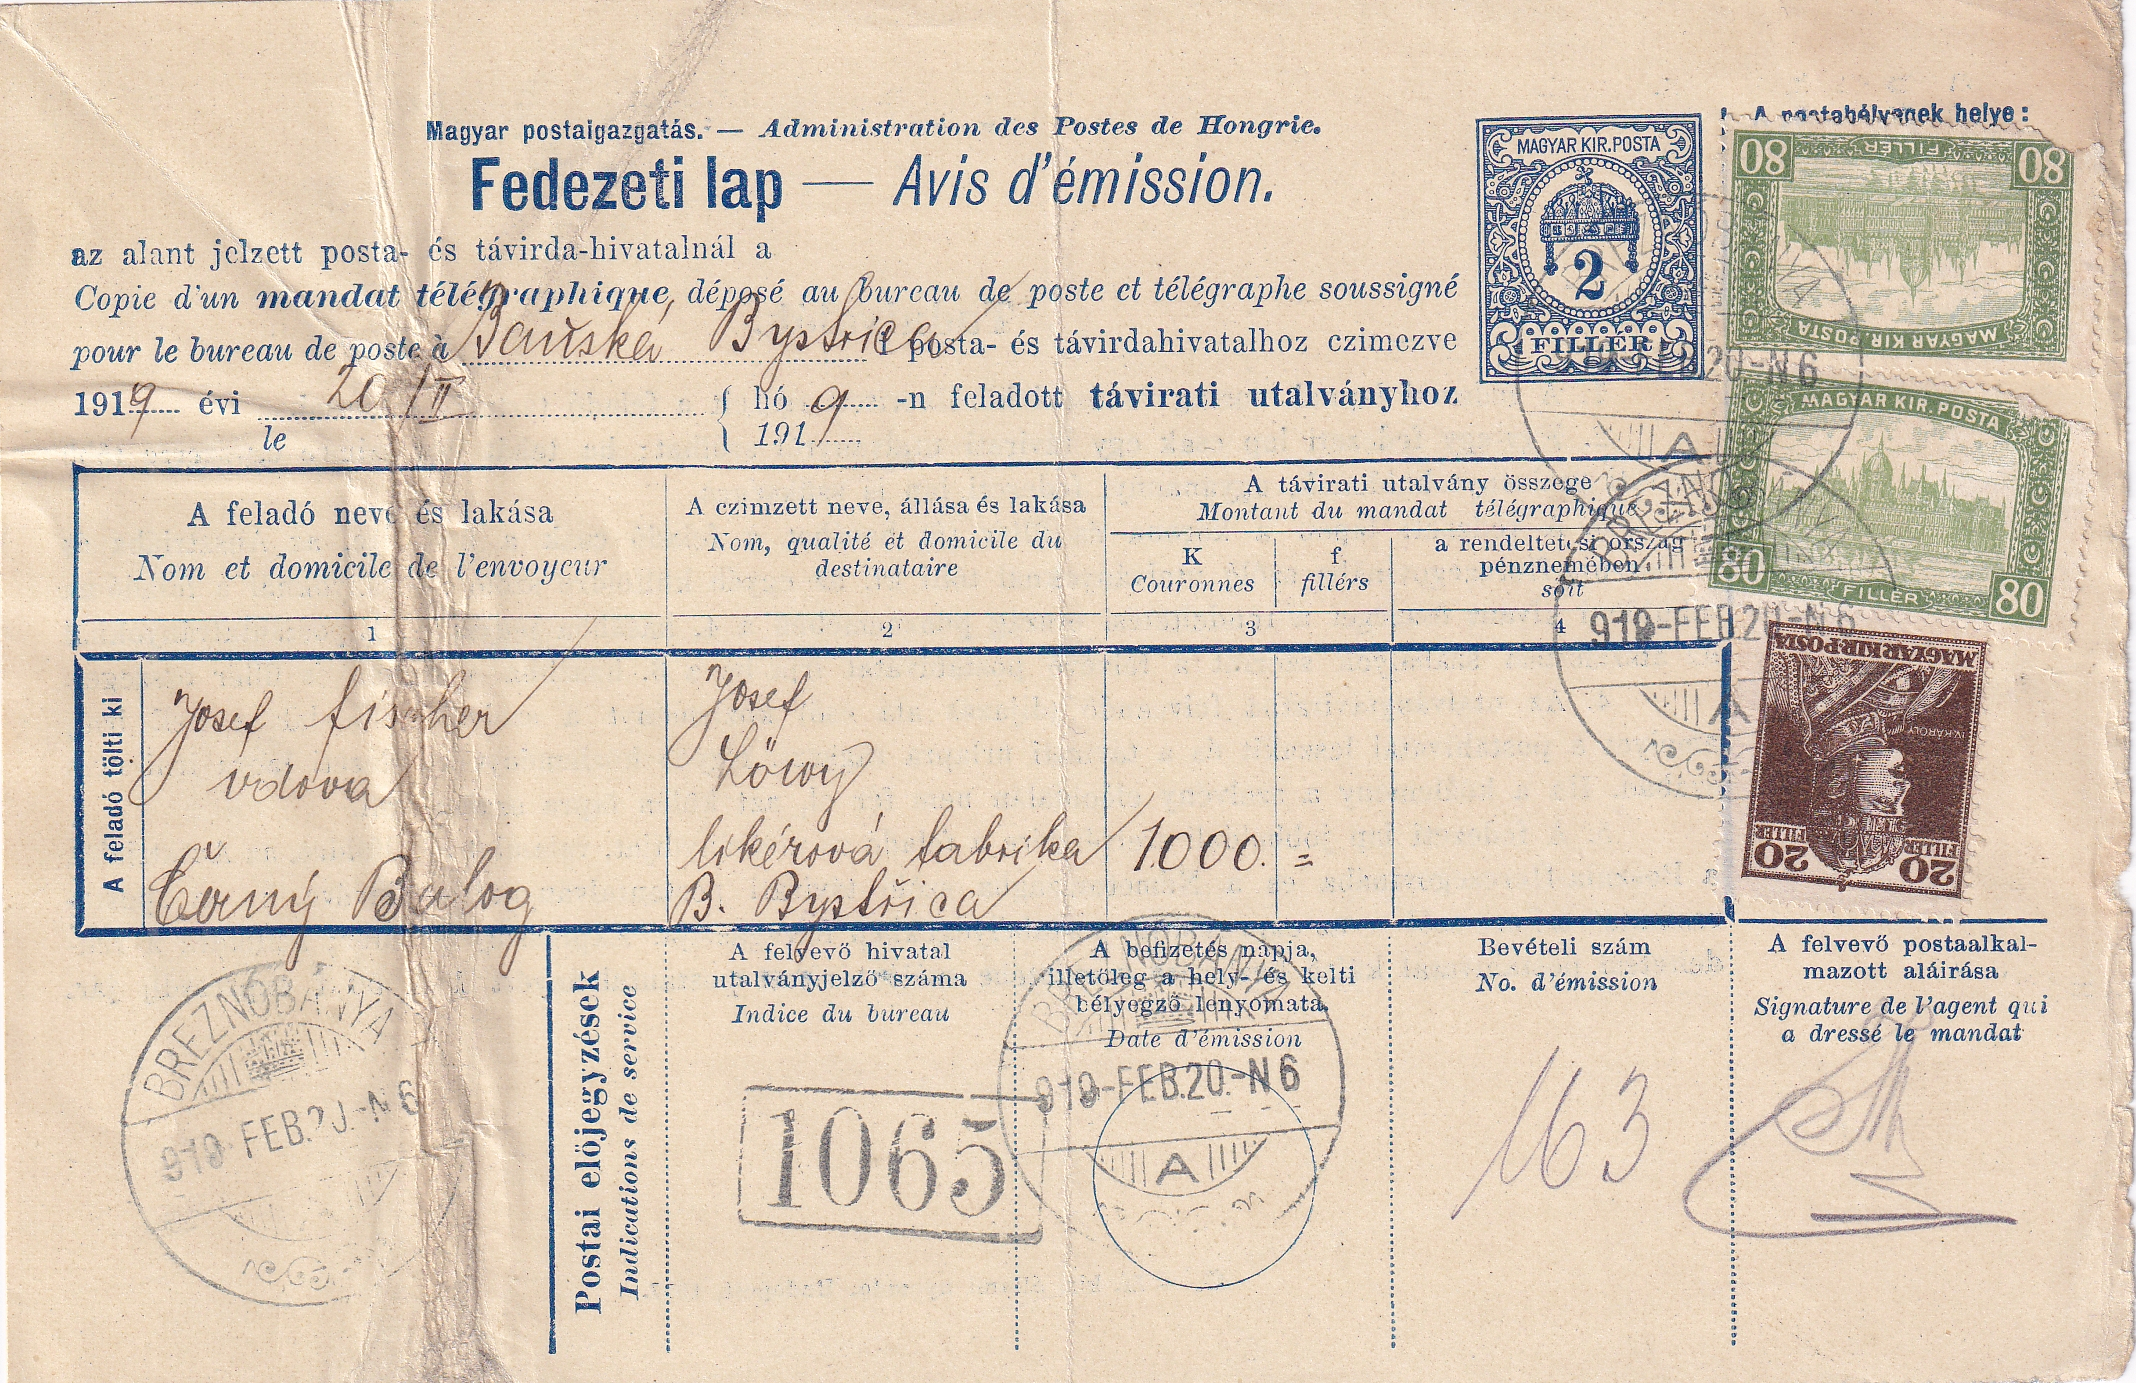 Magyar postaigazgatás. — Administration des Postes de Hongrie.
A postabélyegek helye:
Fedezeti lap — Avis d'émission.
az alant jelzett posta- és távirda-hivatalnál a
Copie d'un mandat télégraphique, déposé au bureau de poste et télégraphe soussigné
pour le bureau de poste à Banská Bystrica posta- és távirdahivatalhoz czimezve
1919 évi 20/II hó 9 -n feladott távirati utalványhoz
le 191
MAGYAR KIR. POSTA
2
FILLÉR
80 FILLÉR 80
MAGYAR KIR. POSTA
MAGYAR KIR. POSTA
80 FILLÉR 80
MAGYAR KIR POSTA
IV. KÁROLY
20 FILLÉR
20 FILLÉR
A feladó neve és lakása
Nom et domicile de l'envoyeur
1
A czimzett neve, állása és lakása
Nom, qualité et domicile du
destinataire
2
A távirati utalvány összege
Montant du mandat télégraphique
K
Couronnes
f
fillérs
3
a rendeltetési ország
pénznemében
soit
4
A feladó tölti ki
Josef fischer
vdova
Černý Balog
Josef
Löwy
likérová fabrika
B. Bystřica
1000. =
Postai előjegyzések
Indications de service
A felvevő hivatal
utalványjelző száma
Indice du bureau
1065
A befizetés napja,
illetőleg a hely- és kelti
bélyegző lenyomata.
Date d'émission
Bevételi szám
No. d'émission
163
A felvevő postaalkal-
mazott aláirása
Signature de l'agent qui
a dressé le mandat
BREZNÓBÁNYA
919 FEB.20.-N 6
BREZNÓBÁNYA
919-FEB.20.-N 6
A
BREZNÓBÁNYA
919-FEB.20-N6
A
20-N6
A